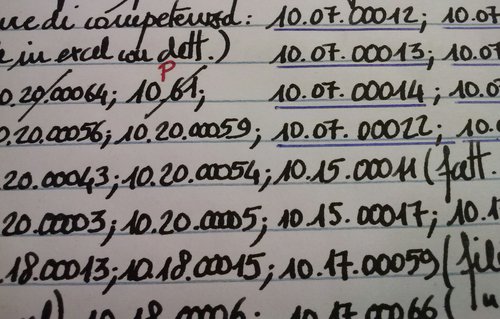 di competenza: 10.07.00012; 10.07
in excel con dott.) 10.07.00013; 10.07
P
0.20.00064; 10.61; 10.07.00014; 10.0
0.20.00056; 10.20.00059; 10.07.00022; 10.0
20.00043; 10.20.00054; 10.15.00011 (fatt.
20.00003; 10.20.0005; 10.15.00017; 10.1
.18.00013; 10.18.00015; 10.17.00059 (file
10.18.0006; 10.17.00066 (